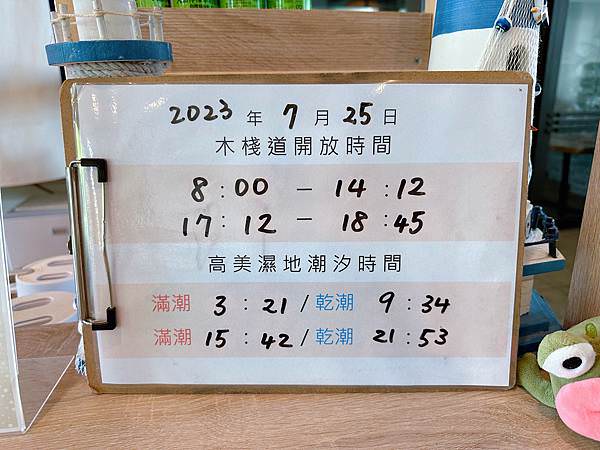 2023 年 7 月 25 日
木棧道開放時間
8:00 — 14:12
17:12 — 18:45
高美濕地潮汐時間
滿潮 3:21 / 乾潮 9:34
滿潮 15:42 / 乾潮 21:53